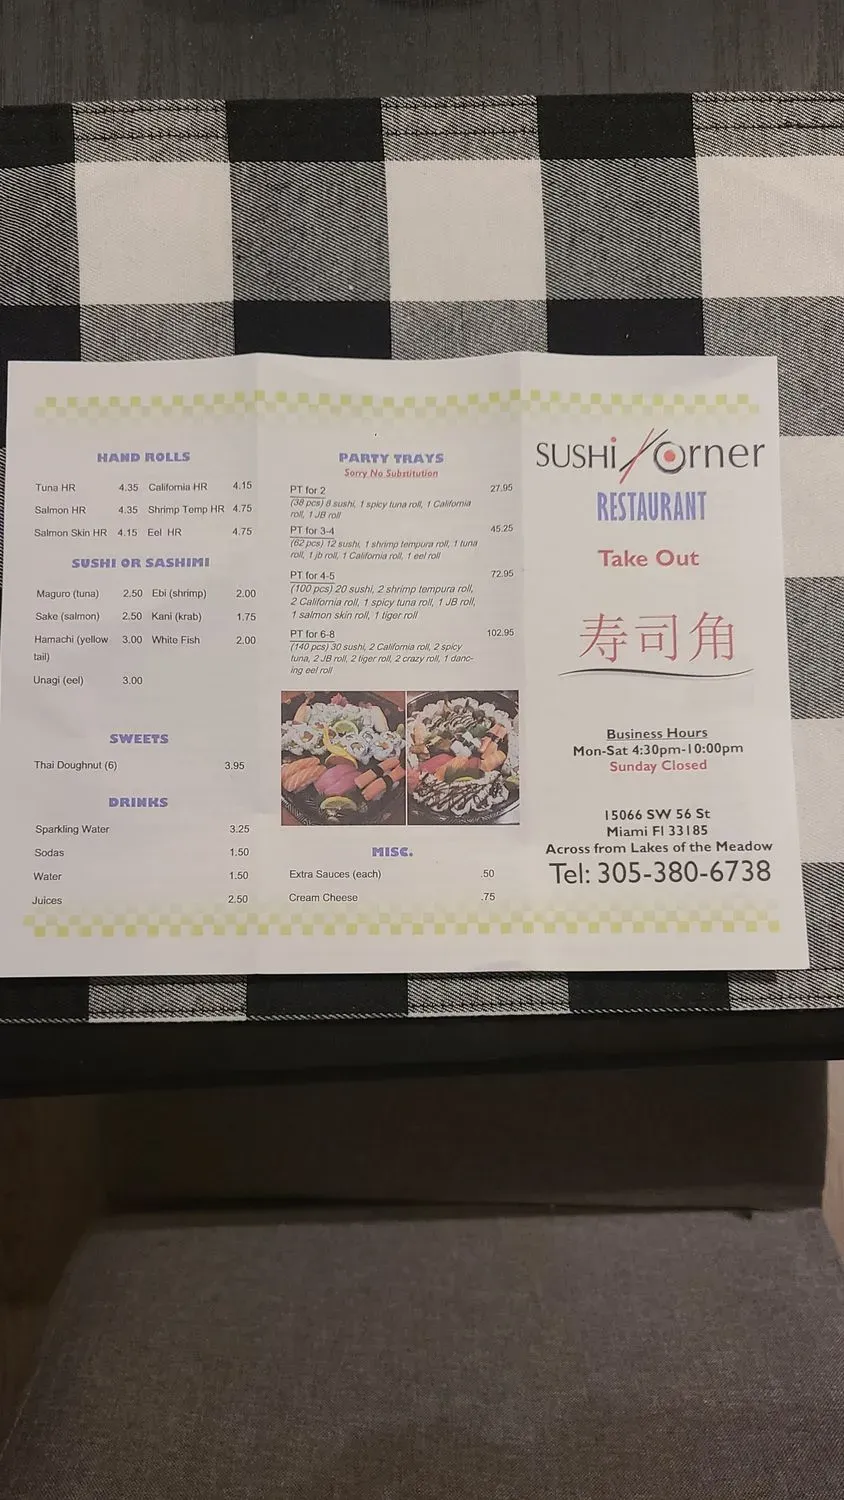 HAND ROLLS
Tuna HR 4.35 California HR 4.15
Salmon HR 4.35 Shrimp Temp HR 4.75
Salmon Skin HR 4.15 Eel HR 4.75
SUSHI OR SASHIMI
Maguro (tuna) 2.50 Ebi (shrimp) 2.00
Sake (salmon) 2.50 Kani (krab) 1.75
Hamachi (yellow 3.00 White Fish 2.00
tail)
Unagi (eel) 3.00
SWEETS
Thai Doughnut (6) 3.95
DRINKS
Sparkling Water 3.25
Sodas 1.50
Water 1.50
Juices 2.50
PARTY TRAYS
Sorry No Substitution
PT for 2 27.95
(38 pcs) 8 sushi, 1 spicy tuna roll, 1 California
roll, 1 JB roll
PT for 3-4 45.25
(62 pcs) 12 sushi, 1 shrimp tempura roll, 1 tuna
roll, 1 jb roll, 1 California roll, 1 eel roll
PT for 4-5 72.95
(100 pcs) 20 sushi, 2 shrimp tempura roll,
2 California roll, 1 spicy tuna roll, 1 JB roll,
1 salmon skin roll, 1 tiger roll
PT for 6-8 102.95
(140 pcs) 30 sushi, 2 California roll, 2 spicy
tuna, 2 JB roll, 2 tiger roll, 2 crazy roll, 1 danc-
ing eel roll
MISC.
Extra Sauces (each) .50
Cream Cheese .75
SUSHi Korner
RESTAURANT
Take Out
寿司角
Business Hours
Mon-Sat 4:30pm-10:00pm
Sunday Closed
15066 SW 56 St
Miami Fl 33185
Across from Lakes of the Meadow
Tel: 305-380-6738